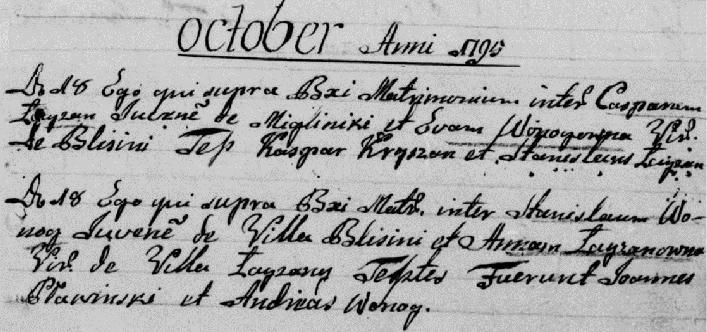 October Anni 1795
Do 18 Ego qui supra Bxi Matrimonium inter Casparum
Łagzan Juvenē de Migliniki et Evam Wonogowna Vir.
de Blisini Test Kaspar Kryszan et Stanislaus Łagzan
Do 18 Ego qui supra Bxi Matr. inter Stanislaum Wo-
nog Juvenē de Villa Blisini et Annam Łagzanowna
Vir. de Villa Łagzany Testes Fuerunt Joannes
Pławinski et Andreas Wonog.